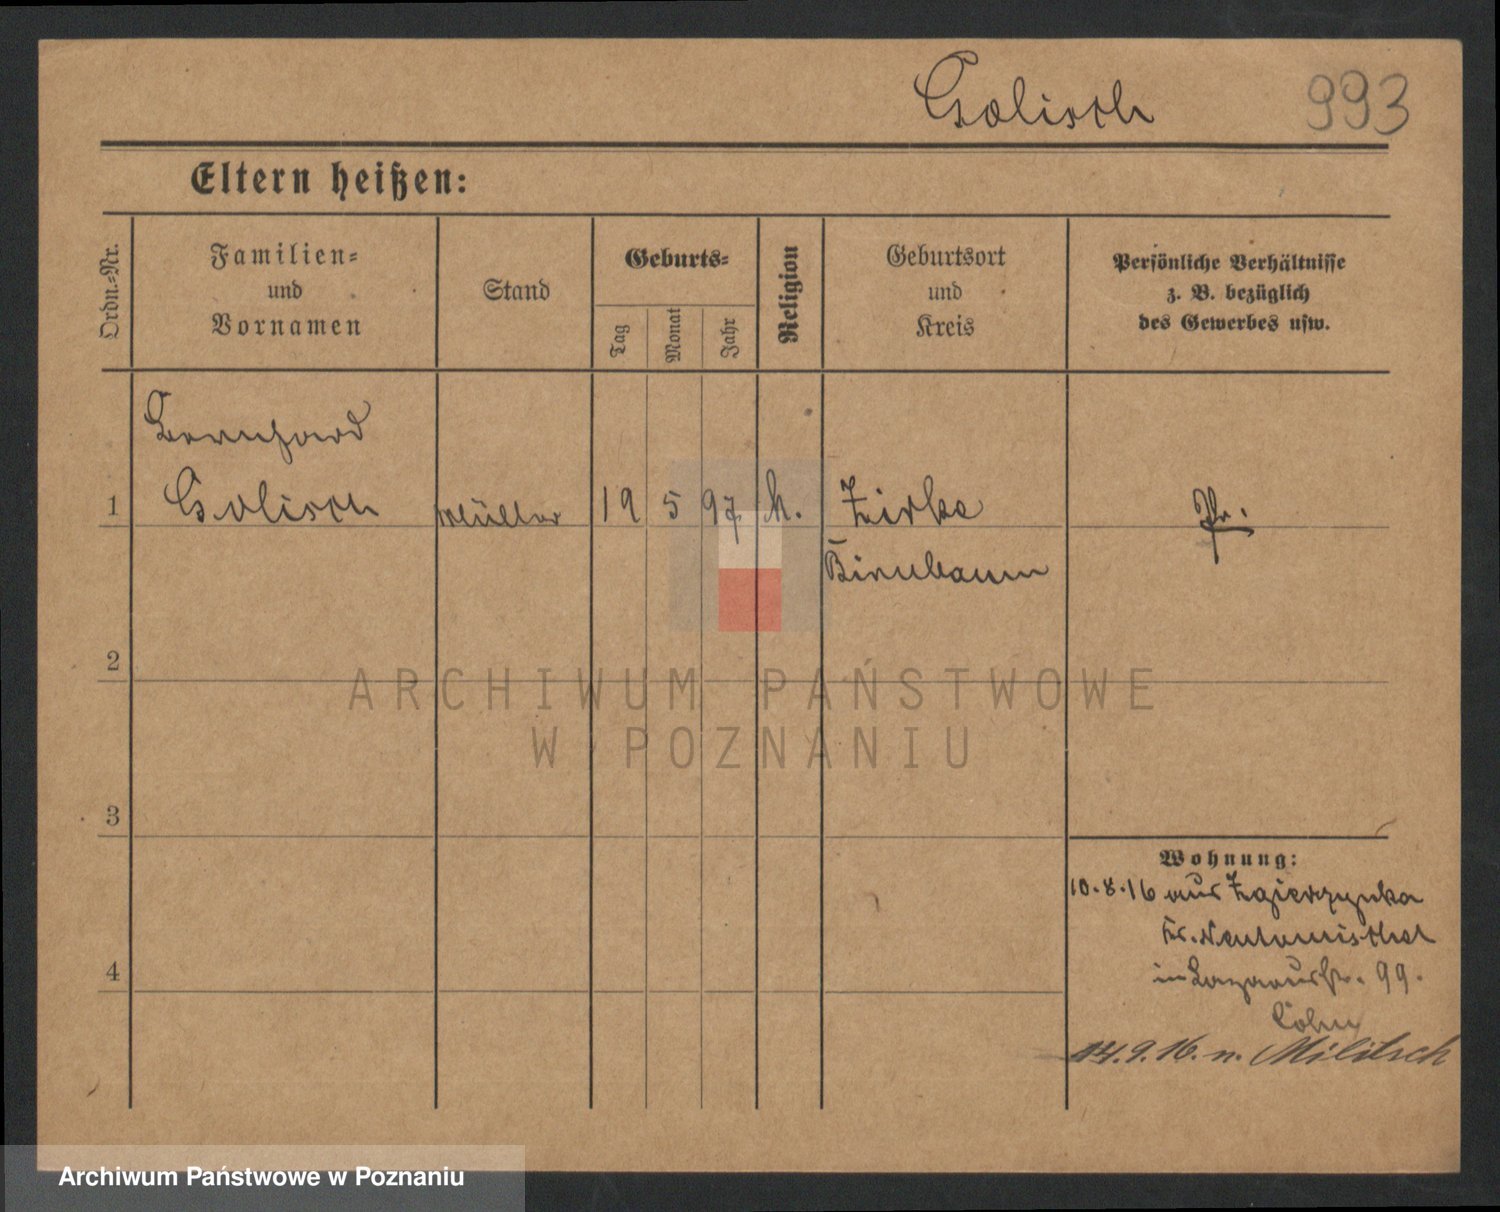 Golisch 993
Eltern heißen:
Ordn.-Nr.
Familien-
und
Vornamen
Stand
Geburts-
Tag
Monat
Jahr
Religion
Geburtsort
und
Kreis
Persönliche Verhältnisse
z. B. bezüglich
des Gewerbes usw.
Bernhard
1 Golisch Müller 19 5 97 k. Zirke Pr.
Birnbaum
2
ARCHIWUM PAŃSTWOWE
W POZNANIU
3
Wohnung:
10.8.16 aus Zgierzynka
Kr. Neutomischel
4
in Lazarusstr. 99.
Cohn
14.9.16. n. Militsch
Archiwum Państwowe w Poznaniu